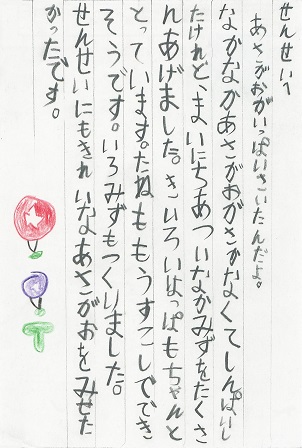 せんせいへ
あさがおがいっぱいさいたんだよ。
なかなかあさがおがさかなくてしんぱいし
たけれど、まいにちあついなかみずをたくさ
んあげました。きいろいはっぱもちゃんと
とっています。たねももうすこしでき
そうです。いろみずもつくりました。
せんせいにもきれいなあさがおをみせた
かったです。